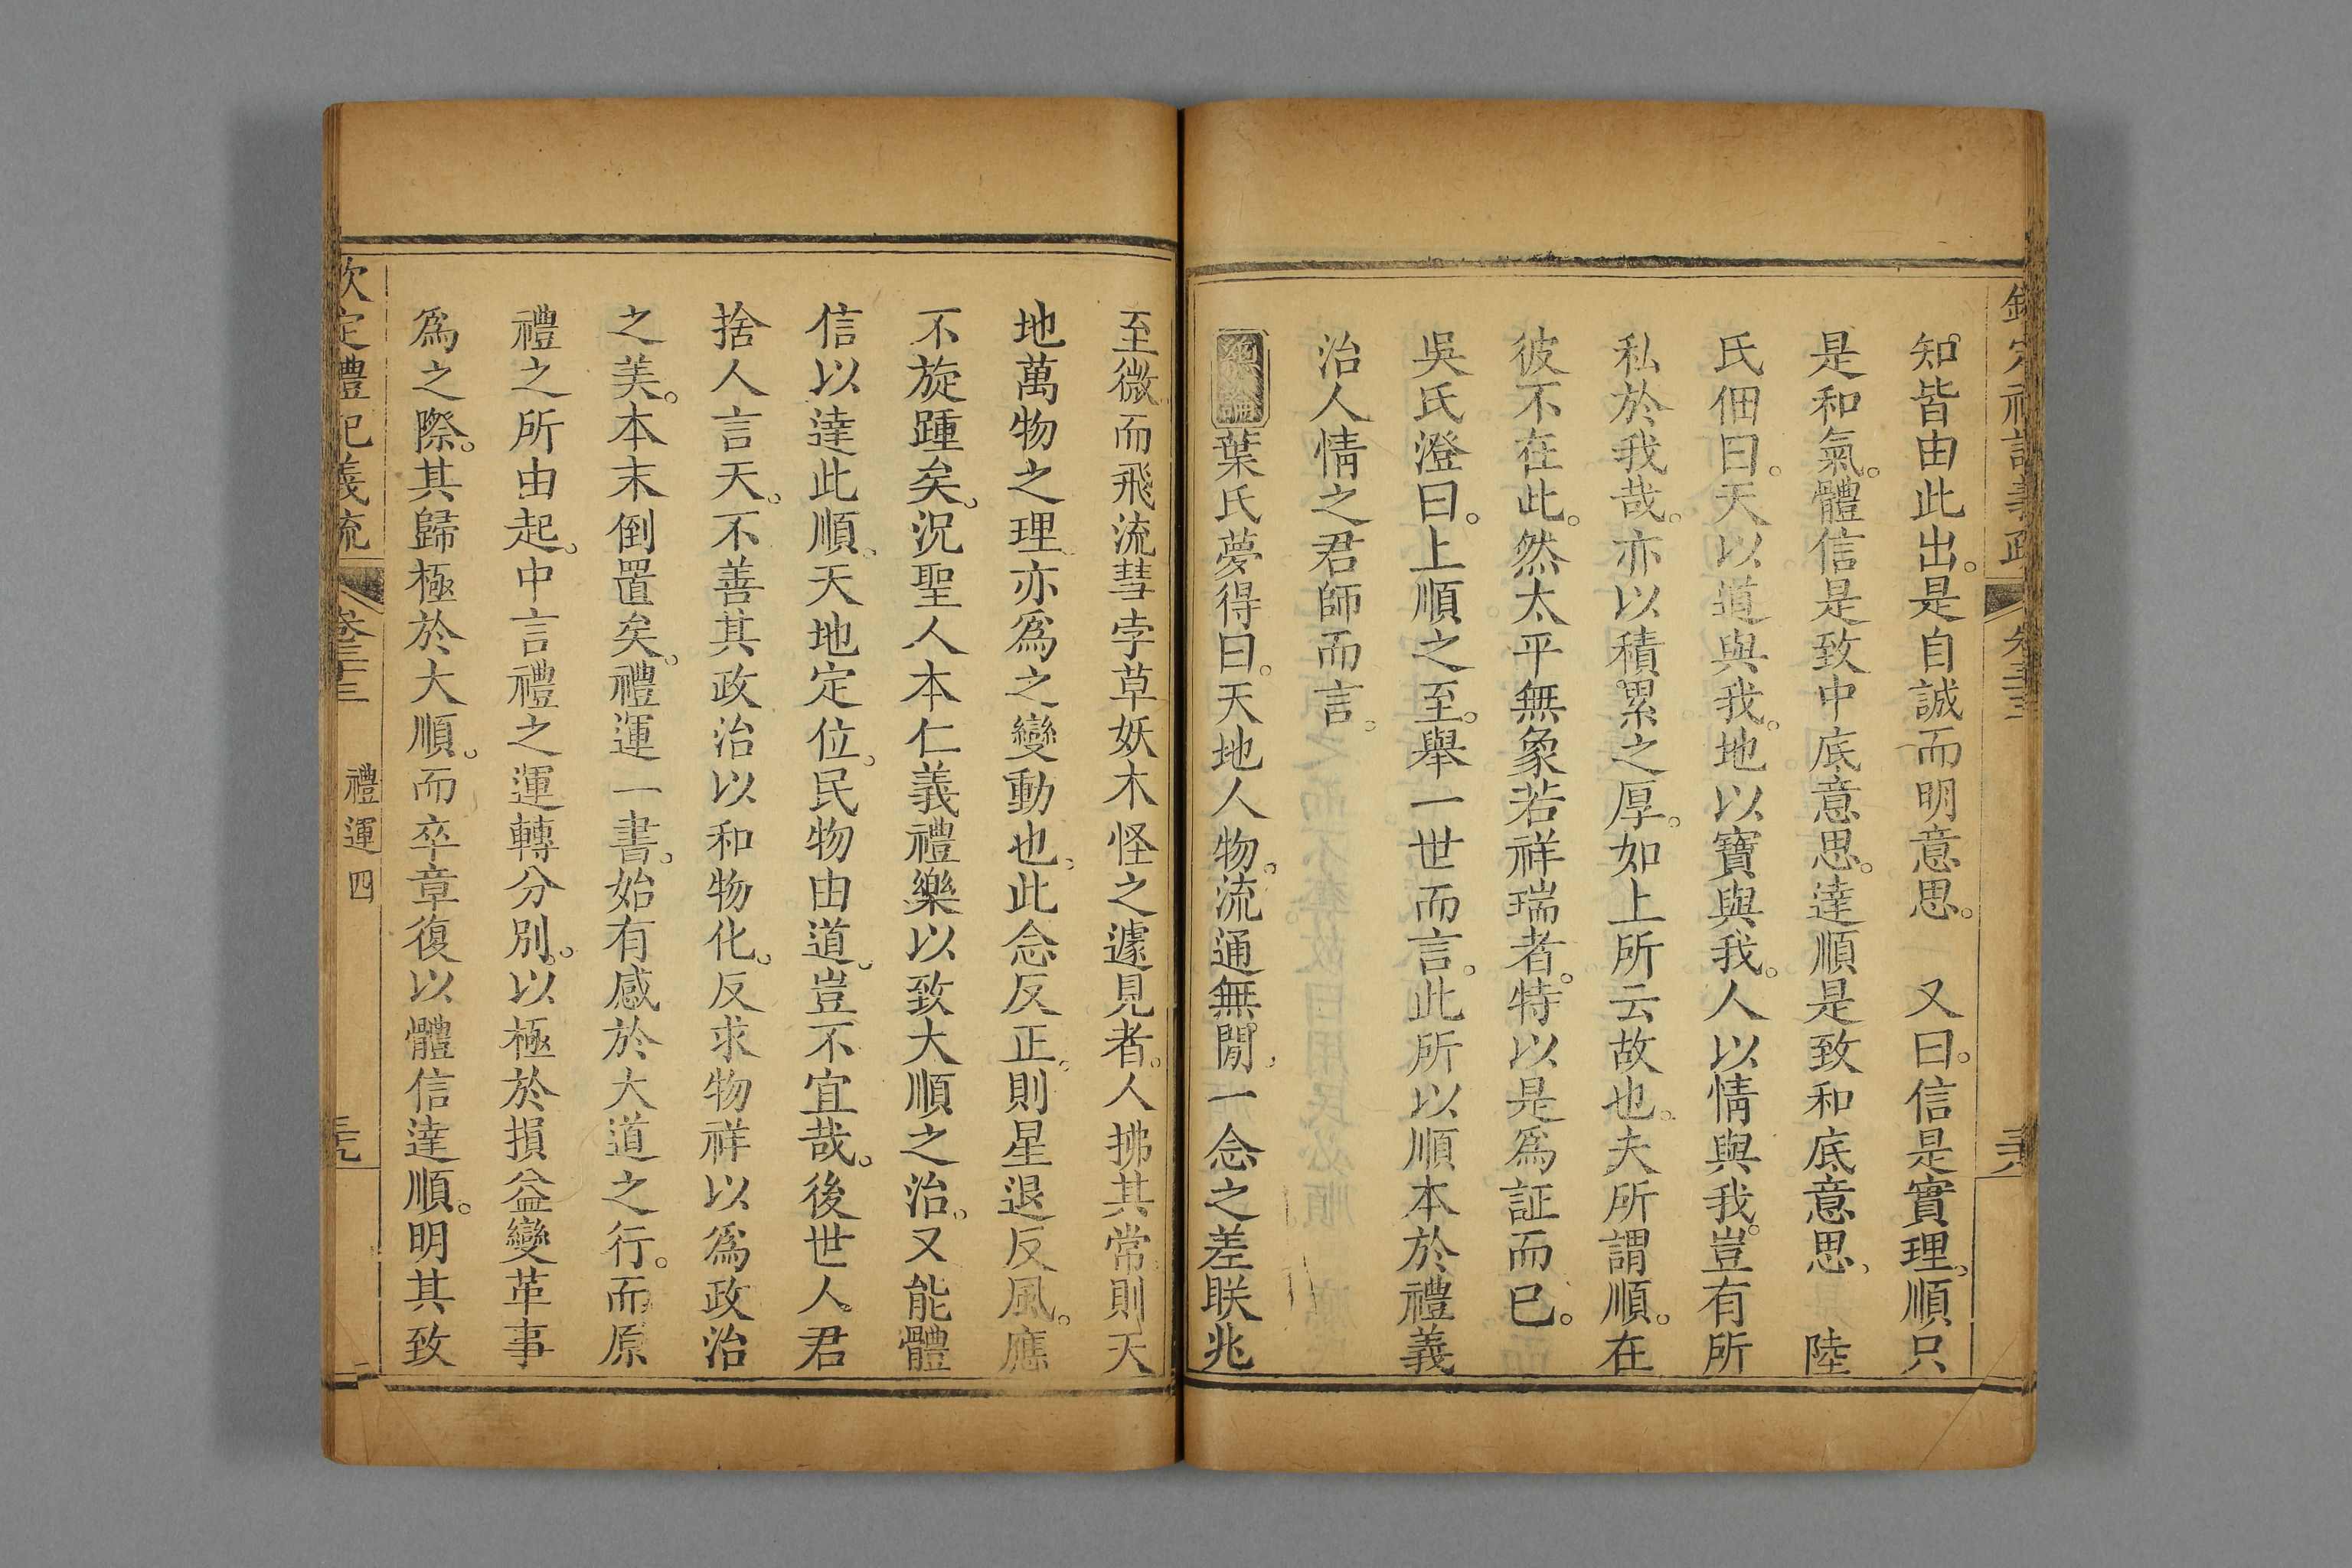 欽定禮記義疏 卷三十三 三六
知皆由此出。是自誠而明意思。 又曰。信是實理。順只
是和氣。體信是致中底意思。達順是致和底意思。 陸
氏佃曰。天以道與我。地以寶與我。人以情與我。豈有所
私於我哉。亦以積累之厚。如上所云故也。夫所謂順。在
彼不在此。然太平無象若祥瑞者。特以是爲証而已。
吳氏澄曰。上順之至。舉一世而言。此所以順本於禮義
治人情之君師而言。
總論葉氏夢得曰。天地人物。流通無閒。一念之差眹兆
至微而飛流彗孛草妖木怪之遽見者。人拂其常則天
地萬物之理。亦爲之變動也。此念反正。則星退反風。應
不旋踵矣。況聖人本仁義禮樂以致大順之治。又能體
信以達此順。天地定位。民物由道。豈不宜哉。後世人君
捨人言天。不善其政治以和物化。反求物祥以爲政治
之美。本末倒置矣。禮運一書。始有感於大道之行。而原
禮之所由起。中言禮之運轉分別。以極於損益變革事
爲之際。其歸極於大順。而卒章復以體信達順。明其致
欽定禮記義疏 卷三十三 禮運四 三元